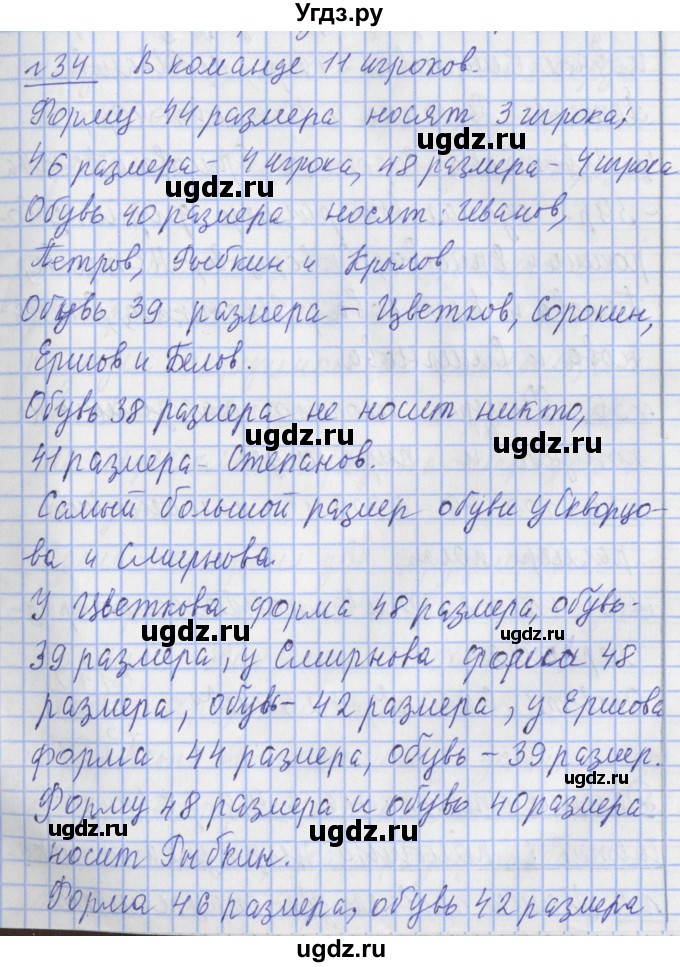 Угдз.ру
№34 В команде 11 игроков.
Форму 44 размера носят 3 игрока;
46 размера - 4 игрока, 48 размера - 4 игрока
Обувь 40 размера носят: Иванов,
ugdz.ru ugdz.ru
Петров, Рыбкин и Крылов
Обувь 39 размера - Цветков, Сорокин,
ugdz.ru
Ершов и Белов.
Обувь 38 размера не носит никто,
ugdz.ru ugdz.ru
41 размера - Степанов.
Самый большой размер обуви у Скворцо-
ва и Смирнова.
У Цветкова форма 48 размера, обувь-
ugdz.ru ugdz.ru
39 размера, у Смирнова форма 48
размера, обувь - 42 размера, у Ершова
форма 44 размера, обувь - 39 размер.
ugdz.ru
Форму 48 размера и обувь 40 размера
ugdz.ru ugdz.ru
носит Рыбкин.
Форма 46 размера, обувь 42 размера
ugdz.ru